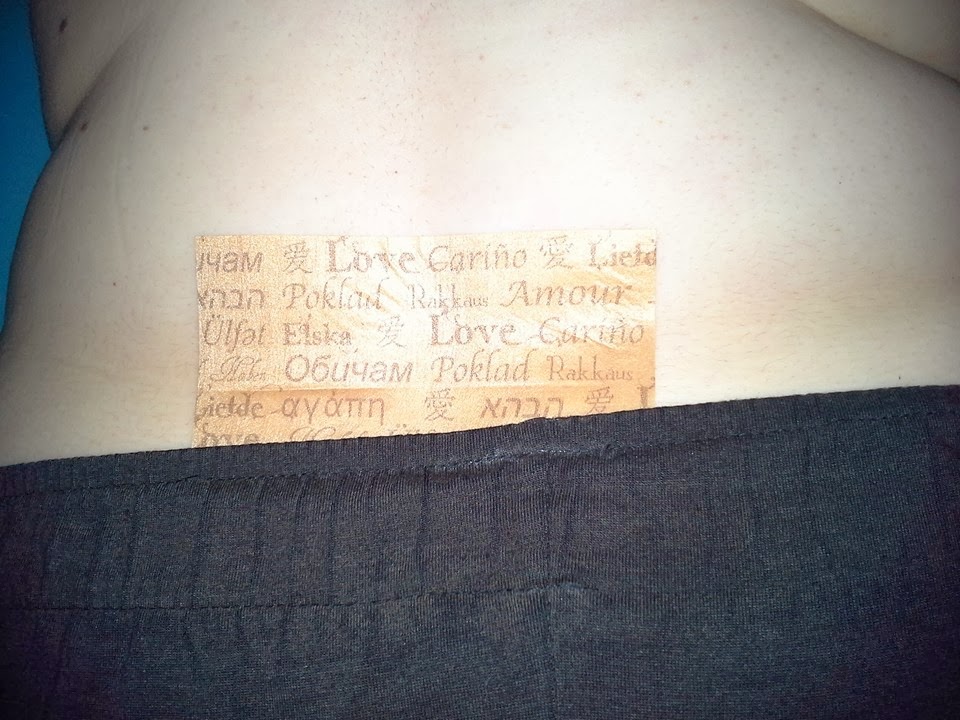 ичам 愛 Love Cariño 愛 Liefd
הבהא Poklad Rakkaus Amour
Ülfət Elska 愛 Love Cariño
Обичам Poklad Rakkaus
Liefde αγάπη 愛 הבהא 愛
Love